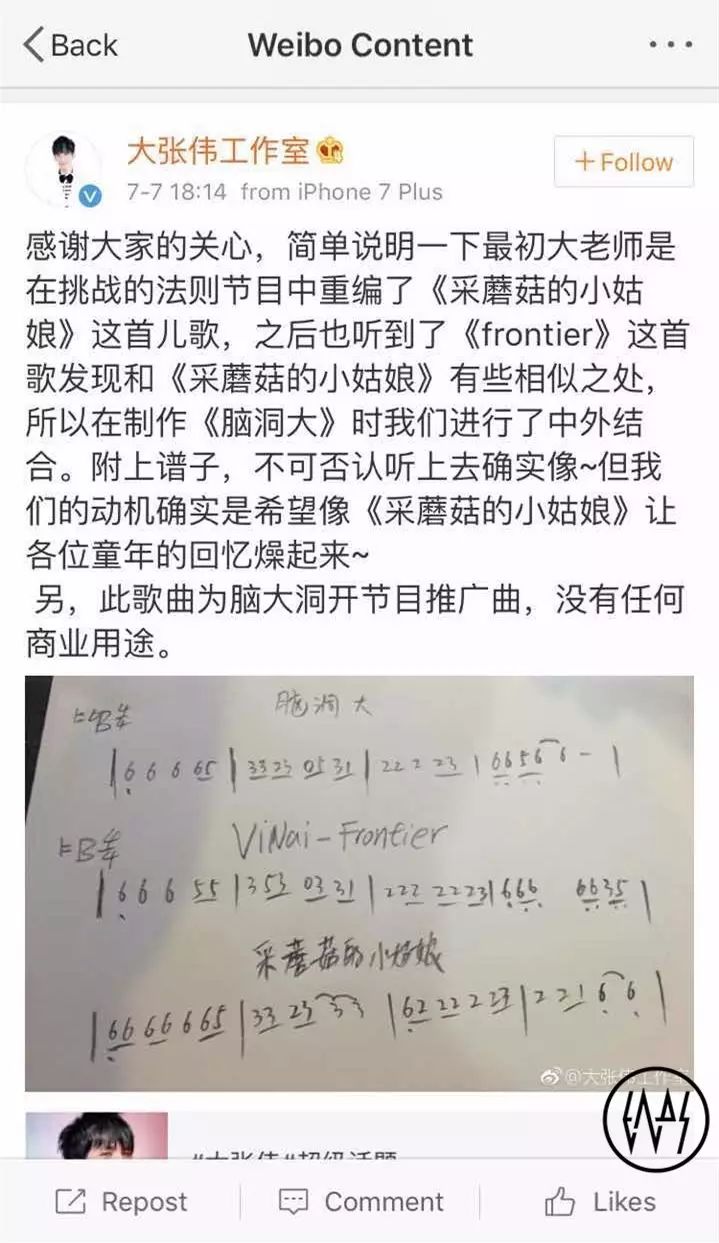 Back
Weibo Content
大张伟工作室
7-7 18:14 from iPhone 7 Plus
+Follow
感谢大家的关心，简单说明一下最初大老师是
在挑战的法则节目中重编了《采蘑菇的小姑
娘》这首儿歌，之后也听到了《frontier》这首
歌发现和《采蘑菇的小姑娘》有些相似之处，
所以在制作《脑洞大》时我们进行了中外结
合。附上谱子，不可否认听上去确实像~但我
们的动机确实是希望像《采蘑菇的小姑娘》让
各位童年的回忆燥起来~
另，此歌曲为脑大洞开节目推广曲，没有任何
商业用途。
脑洞大
|6 6 6 65|33 23 05 31|22 2 23|6656 6 - |
ViNai-Frontier
|6 6 6 55|353 03 31|222 2223|666 6635|
采蘑菇的小姑娘
|66 66 6 65|33 23 33|62 22 2 23|2 21 6 6|
@大张伟工作室
#大张伟#超级话题
Repost
Comment
Likes